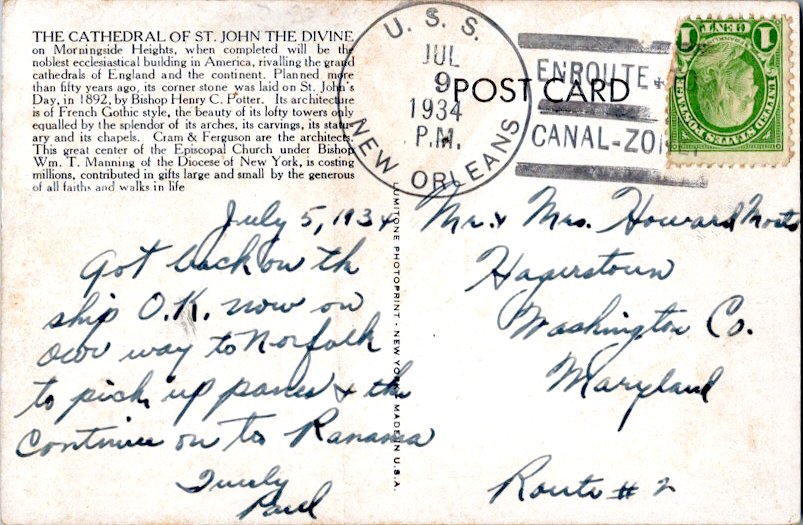 THE CATHEDRAL OF ST. JOHN THE DIVINE
on Morningside Heights, when completed will be the
noblest ecclesiastical building in America, rivalling the grand
cathedrals of England and the continent. Planned more
than fifty years ago, its corner stone was laid on St. John's
Day, in 1892, by Bishop Henry C. Potter. Its architecture
is of French Gothic style, the beauty of its lofty towers only
equalled by the splendor of its arches, its carvings, its statu-
ary and its chapels. Cram & Ferguson are the architects.
This great center of the Episcopal Church under Bishop
Wm. T. Manning of the Diocese of New York, is costing
millions, contributed in gifts large and small by the generous
of all faiths and walks in life
U.S.S.
JUL
9
1934
P.M.
NEW ORLEANS
POST CARD
ENROUTE
CANAL-ZONE
1 CENT 1
UNITED STATES POSTAGE
July 5, 1934
Got back on th
ship O.K. now on
our way to Norfolk
to pick up & the
continue on to Panama
Truely
Paul
LUMITONE PHOTOPRINT · NEW YORK · MADE IN U.S.A.
Mr. & Mrs. Howard
Hagerstown
Washington Co.
Maryland
Route # 2